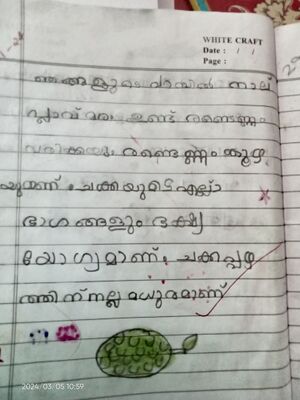 WHITE CRAFT
Date : / /
Page :
ഞങ്ങളുടെ വീട്ടിൽ നാല്
പ്ലാവ് മരം ഉണ്ട് രണ്ടെണ്ണം
വരിക്കയും രണ്ടെണ്ണം കൂഴ
യുമാണ് . ചക്കയുടെ എല്ലാ
ഭാഗങ്ങളും ഭക്ഷ്യ
യോഗ്യമാണ്. ചക്കപ്പഴ
ത്തിന് നല്ല മധുരമാണ്
2024/03/05 10:59